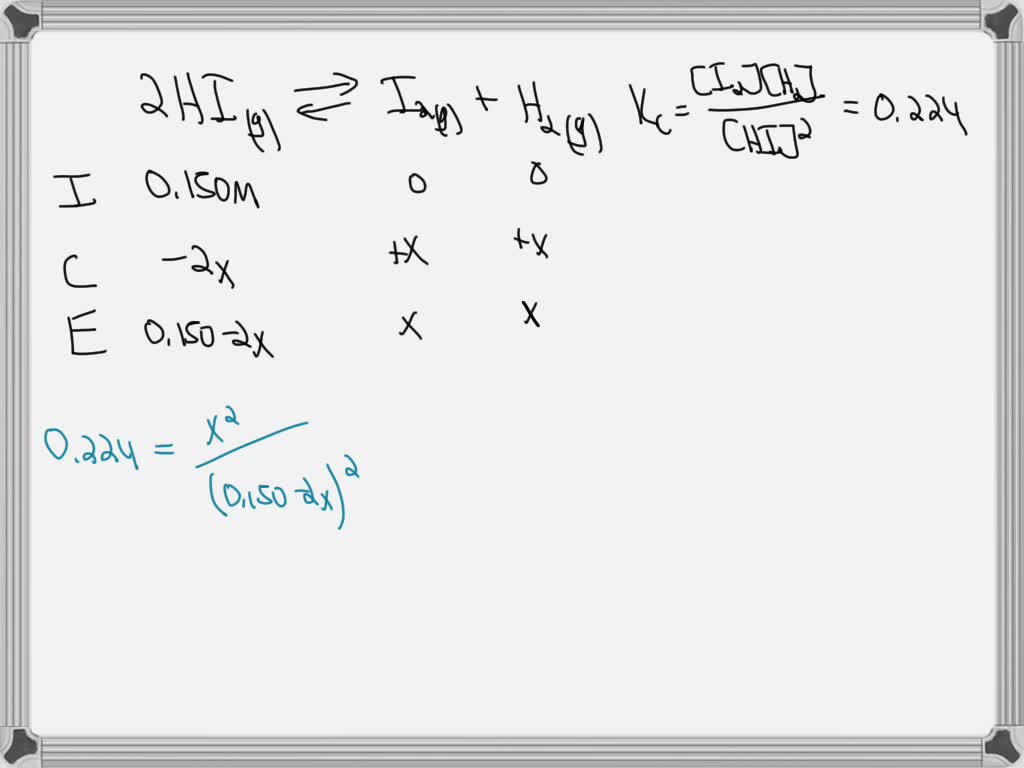 2HI(g) ⇌ I₂(g) + H₂(g) Kc = [I₂][H₂] / [HI]² = 0.224
I 0.150M 0 0
C -2x +x +x
E 0.150-2x x x
0.224 = x² / (0.150-2x)²